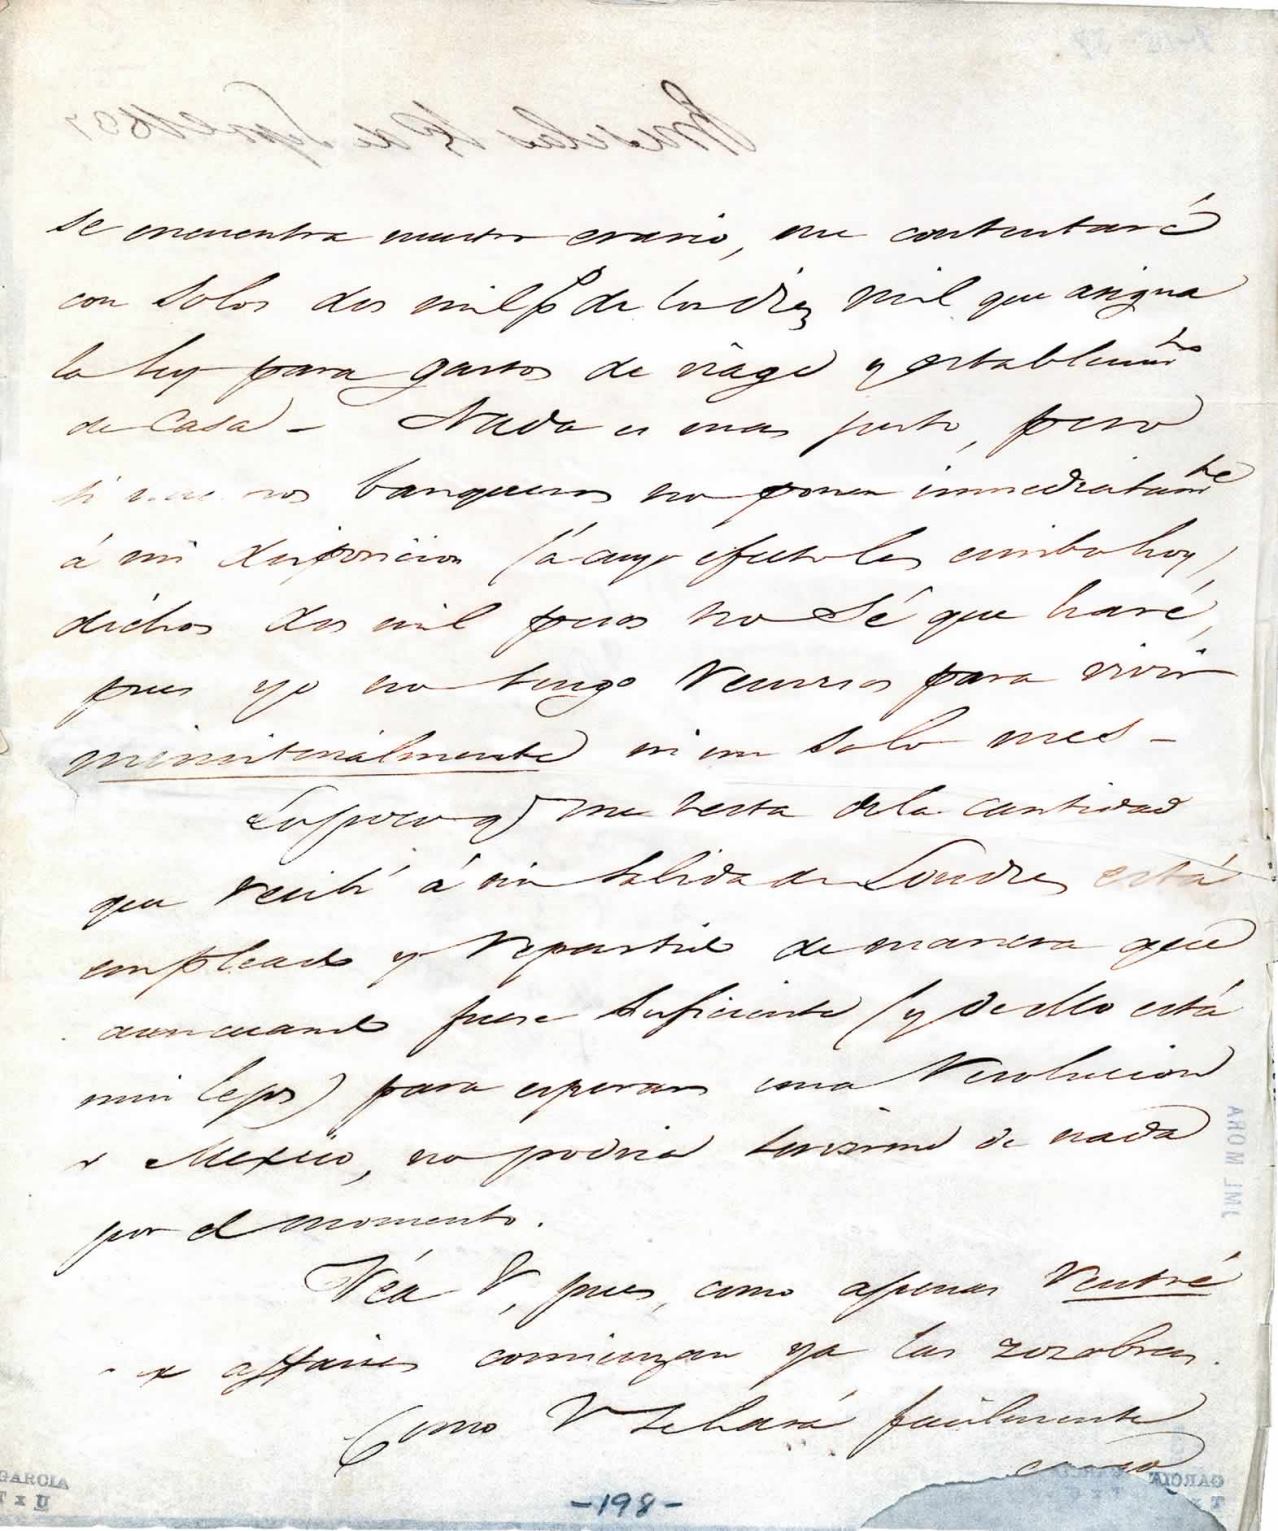 se encuentra nuestro erario, me contentaré
con solos dos mil p.^s de los diez mil que asigna
la ley para gastos de viage y establecim^to
de Casa - Nada es mas justo, pero
si nuestros banqueros no ponen inmediatam^te
á mi disposicion (á cuyo efecto les escribo hoy),
dichos dos mil pesos no sé que haré,
pues yo no tengo recursos para vivir
ministerialmente ni un solo mes -
Lo poco q.^e me resta de la cantidad
que recibí á mi salida de Londres está
empleado y repartido de manera que
aun cuando fuese suficiente (y de ello está
mui lejos) para esperar una resolucion
d México, no podria servirme de nada
por el momento.
Véa V, pues, como apenas rentré
aux affaires comienzan ya las zozobras.
Como V se hará facilmente
cargo
-198-
GARCIA
T x U
JIM MORA